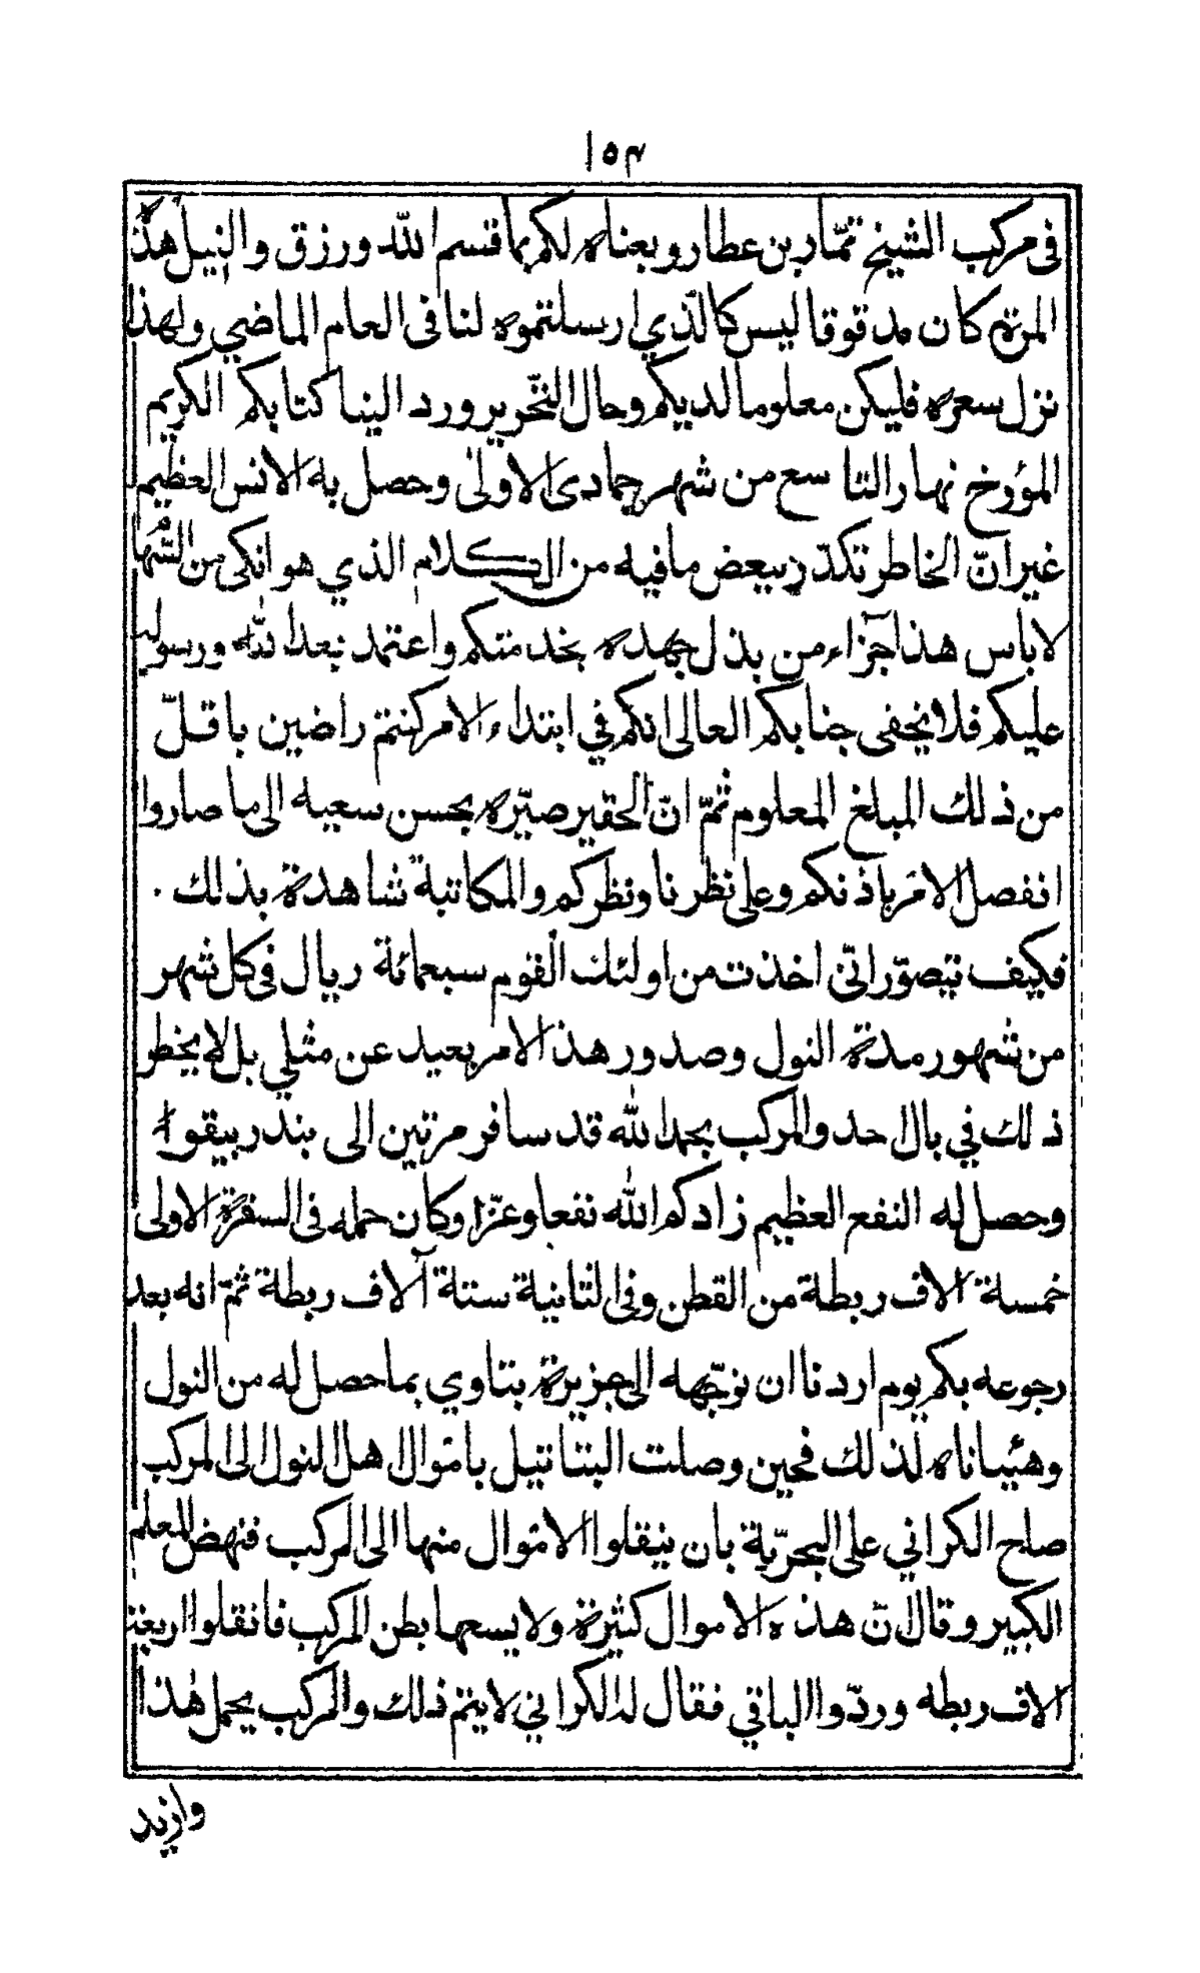 ١٥٣
فى مركب الشيخ تمّار بن عطار وبعناه لكم بما قسم الله ورزق والنيل هذه
المرة كان مدقوقا ليس كالّذي ارسلتموه لنا فى العام الماضي ولهذا
نزل سعره فليكن معلوما لديكم وحال التحّرير ورد الينا كتابكم الكريم
المؤرخ نهار التاسع من شهر جمادى الاولى وحصل به الانس العظيم
غير انّ الخاطر تكدّر ببعض ما فيه من الكلام الذي هو انكى من السّهام
لا باس هذا جزاء من بذل جهده بخدمتكم واعتمد بعد الله ورسوله
عليكم فلا يخفى جنابكم العالى انكم في ابتداء الامر كنتم راضين باقلّ
من ذلك المبلغ المعلوم ثمّ انّ الحقير صيّره بحسن سعيه الى ما صار وا
انفصل الامر باذنكم وعلى نظرنا ونظركم والمكاتبة شاهدة بذلك .
فكيف تتصوّر انّي اخذت من اولئك القوم سبعمائة ريال فى كل شهر
من شهور مدة النول وصدور هذا الامر بعيد عن مثلي بل لا يخطر
ذلك في بال احد والمركب بحمد الله قد سافر مرتين الى بندر بيقو
وحصل له النفع العظيم زادكم الله نفعا وعزّا وكان حمله فى السفرة الاولى
خمسة الاف ربطة من القطن وفى الثانية ستة آلاف ربطة ثمّ انه بعد
رجوعه بكم يوم اردنا ان نوجّهه الى جزيرة بتاوي بما حصل له من النول
وهيّاناه لذلك فحين وصلت البتاتيل باموال اهل النول الى المركب
صاح الكراني على البحريّة بان ينقلوا الاموال منها الى المركب فنهض المعلم
الكبير وقال انّ هذه الاموال كثيرة ولا يسعها بطن المركب فانقلوا اربعة
الاف ربطه وردّوا الباقي فقال له الكراني لا يتم ذلك والمركب يحمل هذا
وازيد